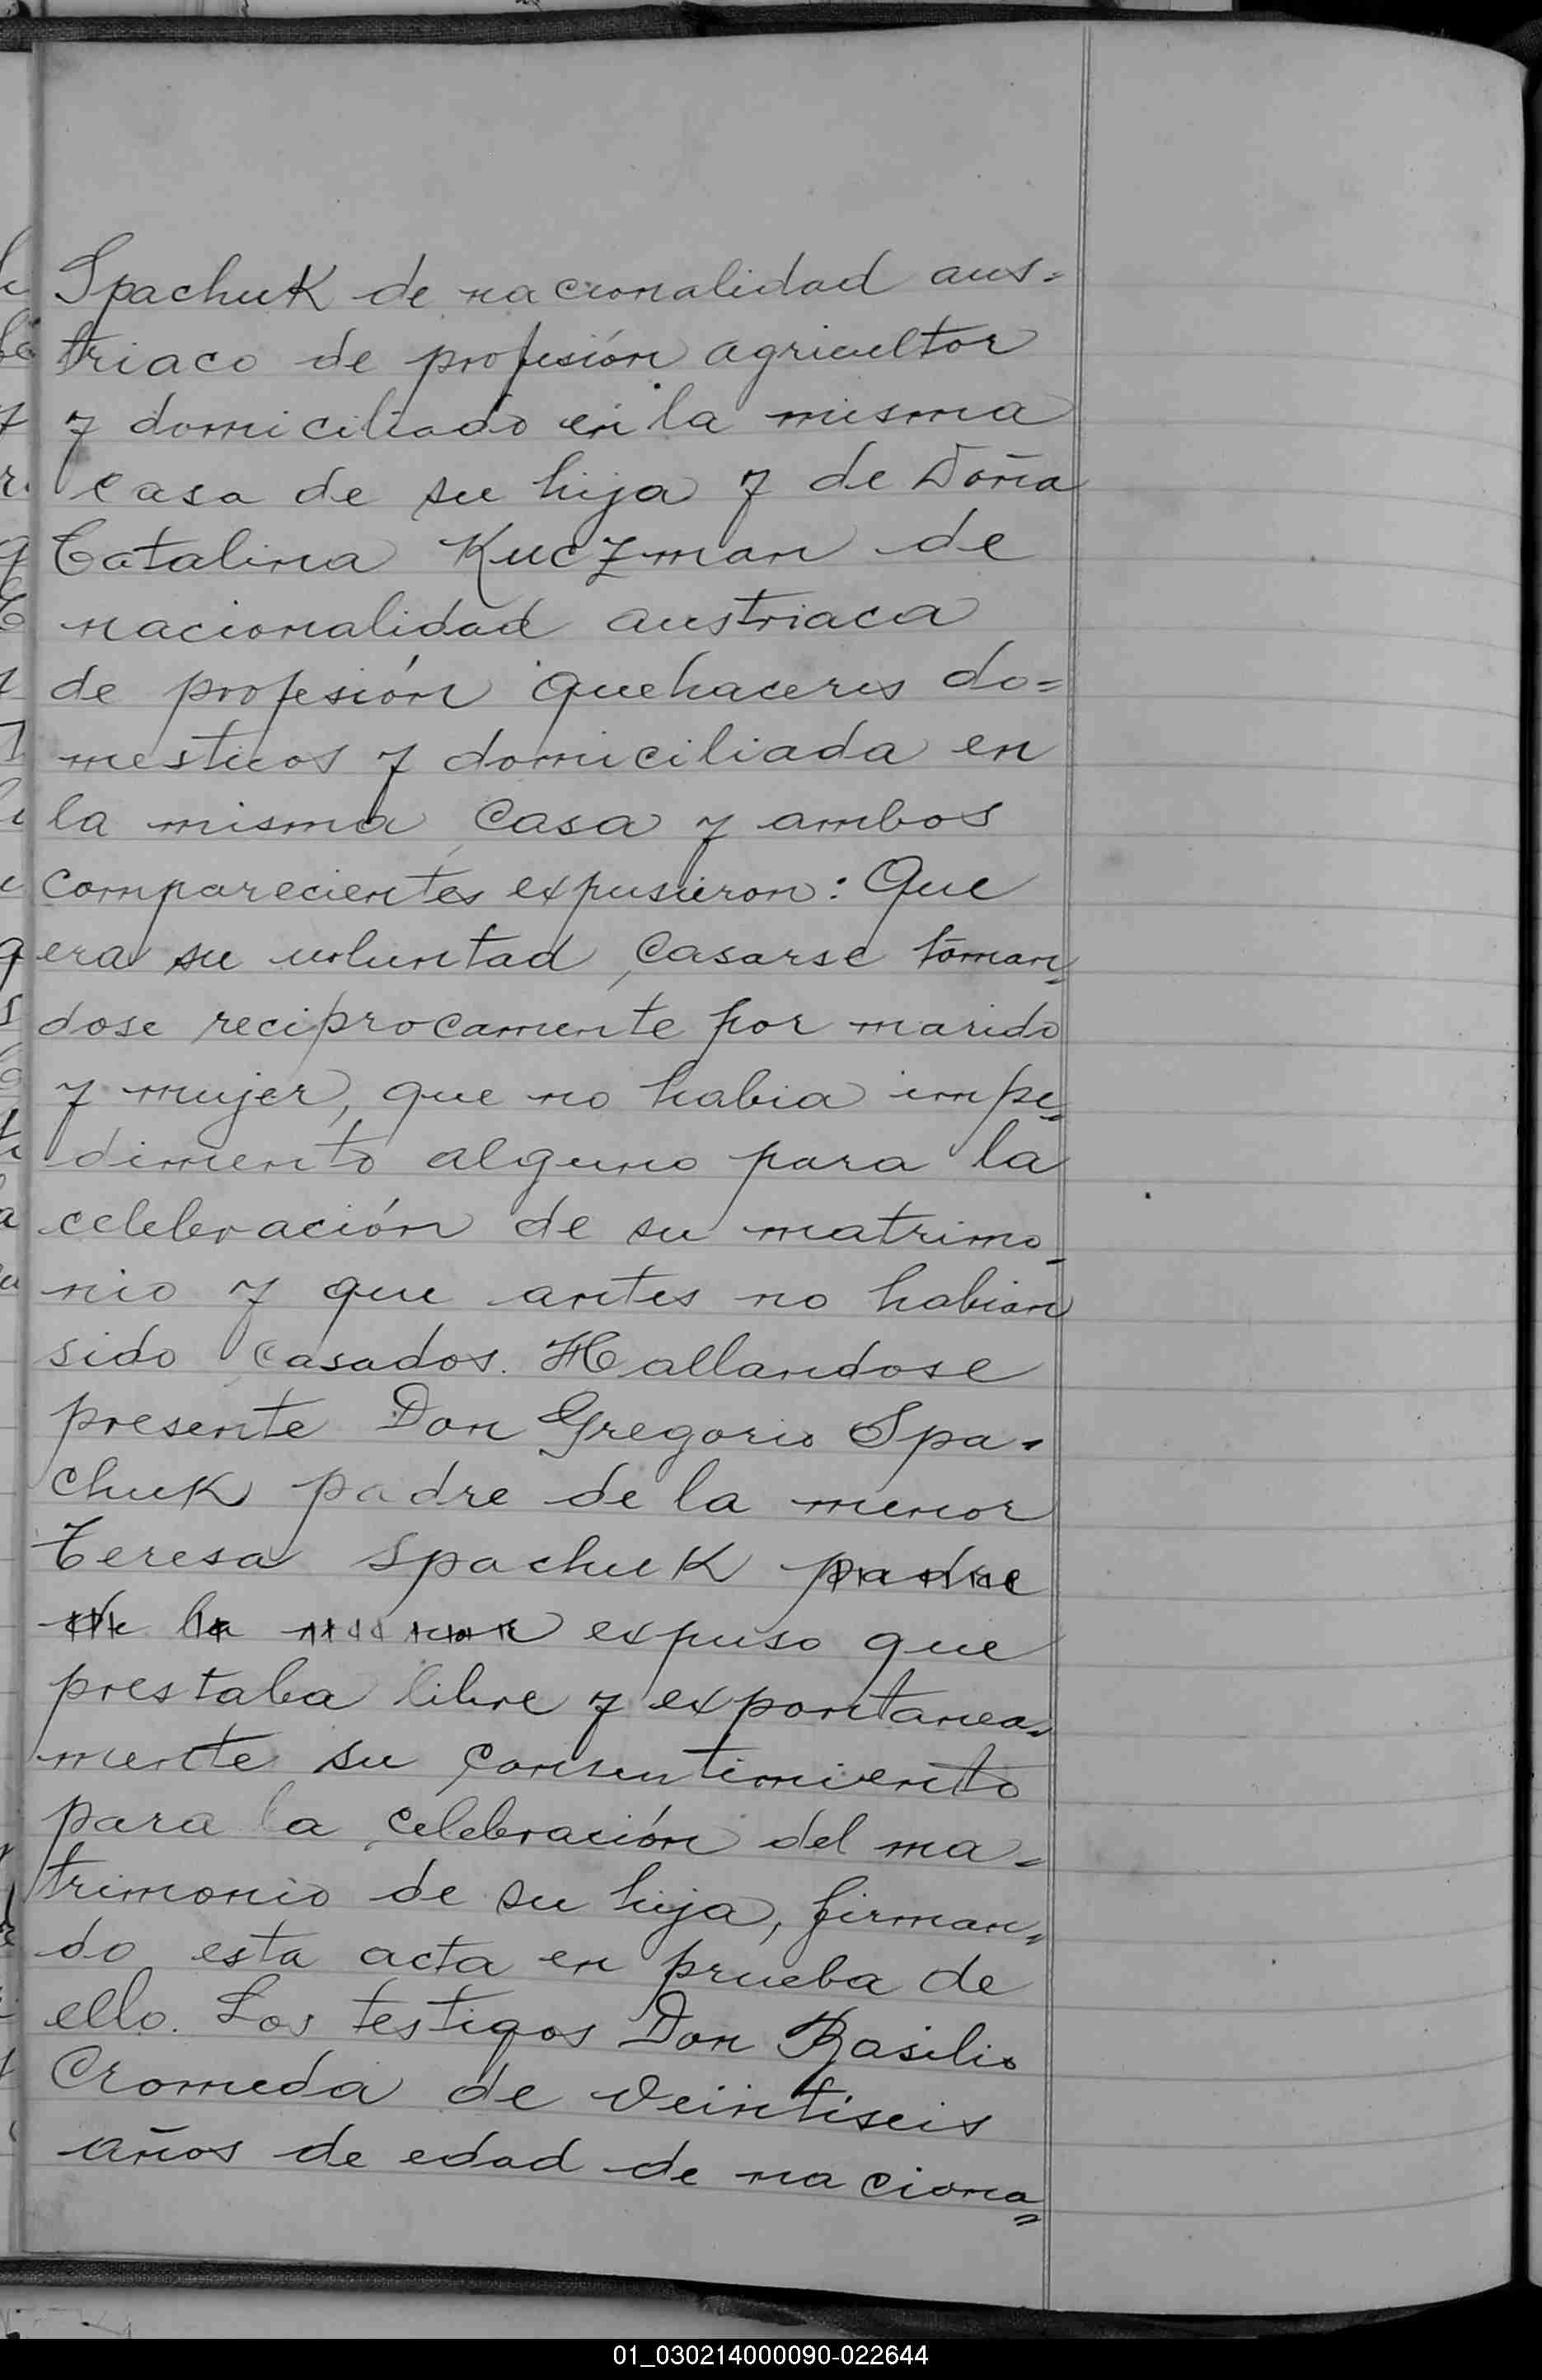 Spachuk de nacionalidad aus=
triaco de profesión agricultor
y domiciliado en la misma
casa de su hija y de Doña
Catalina Kuczman de
nacionalidad austriaca
de profesión quehaceres do=
mesticos y domiciliada en
la misma casa y ambos
comparecientes expusieron: Que
era su voluntad casarse toman=
dose reciprocamente por marido
y mujer, que no habia impe=
dimento alguno para la
celebración de su matrimo-
nio y que antes no habian
sido casados. Hallandose
presente Don Gregorio Spa-
chuk padre de la menor
Teresa Spachuk padre
de la menor expuso que
prestaba libre y expontanea=
mente su consentimiento
para la celebración del ma=
trimonio de su hija, firman=
do esta acta en prueba de
ello. Los testigos Don Basilio
Cromeda de veintiseis
años de edad de naciona=
01_030214000090-022644